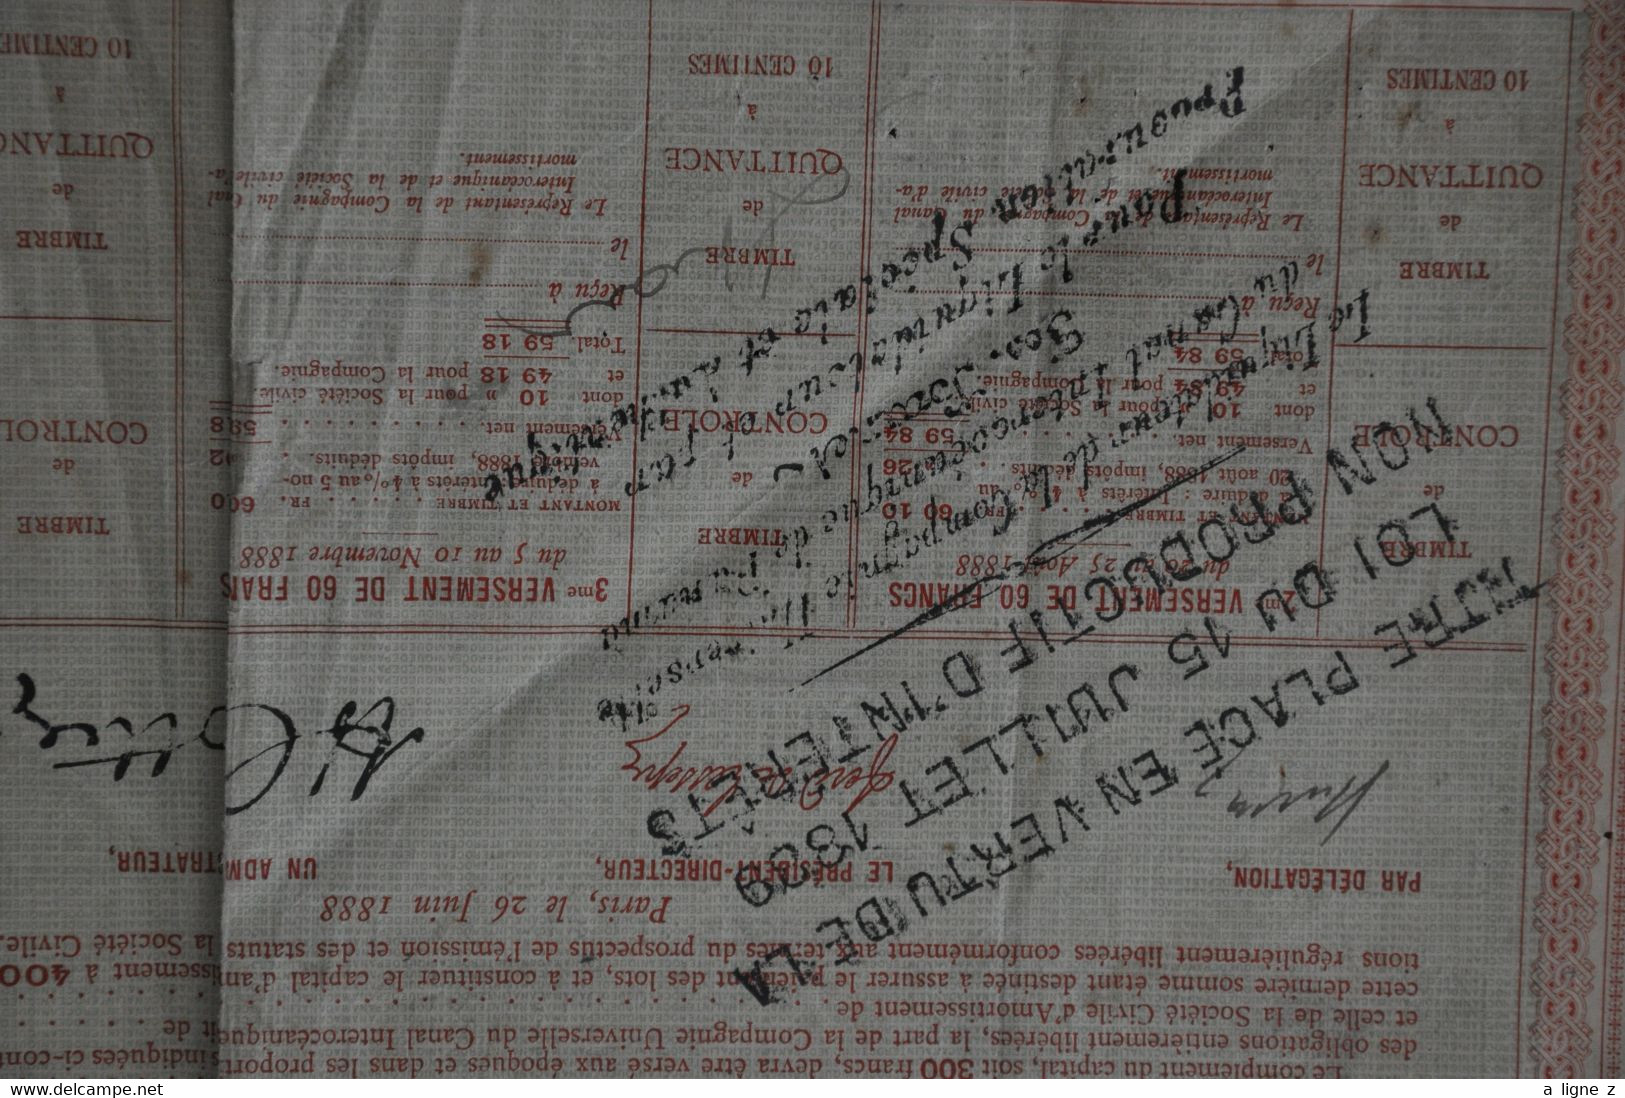 Le complément du capital, soit 300 francs, devra être versé aux époques et dans les proport
indiquées ci-con
des obligations entièrement libérées, la part de la Compagnie Universelle du Canal Interocéanique
et celle de la Société Civile d'Amortissement de
cette dernière somme étant destinée à assurer le paiement des lots, et à constituer le capital d'a
ssement à 400
tions régulièrement libérées conformément aux termes du prospectus de l'émission et des statuts
la Société Civile.
Paris, le 26 Juin 1888
PAR DÉLÉGATION,
LE PRÉSIDENT-DIRECTEUR,
UN ADM
STRATEUR,
Ferd de Lesseps
TITRE PLACÉ EN VERTU DE LA
LOI DU 15 JUILLET 1889
NON PRODUCTIF D'INTERÊTS
Le Liquidateur de la Compagnie Universelle
du Canal Interocéanique de Panama
Pour le Liquidateur et par
Procuration Spéciale et Authentique
2me VERSEMENT DE 60 FRANCS
du 20 au 25 Août 1888
MONTANT ET TIMBRE . . FR. 60 10
à déduire : Intérêts à 4 % du
20 août 1888, impôts déduits . 26
Versement net. 59 84
dont 10 » pour la Société civile
et 49 84 pour la Compagnie.
Total. 59 84
Reçu à
le
Le Représentant de la Compagnie du Canal
Interocéanique et de la Société civile d'a-
mortissement.
3me VERSEMENT DE 60 FRA
NS
du 5 au 10 Novembre 1888
MONTANT ET TIMBRE . . . FR. 60
0
à déduire: Intérêts à 4 % au 5 no-
vembre 1888, impôts déduits. .
92
Versement net. . . . . . . . 59
18
dont 10 » pour la Société civile
et 49 18 pour la Compagnie.
Total. 59 18
Reçu à
le
Le Représentant de la Compagnie du Canal
Interocéanique et de la Société civile d'a-
mortissement.
TIMBRE
de
CONTROLE
TIMBRE
de
QUITTANCE
à
10 CENTIMES
TIMBRE
de
CONTROLE
TIMBRE
de
QUITTANCE
à
10 CENTIMES
TIMBRE
de
CONTROL
TIMBRE
de
QUITTANC
à
10 CENTIMES
www.delcampe.net
a ligne z